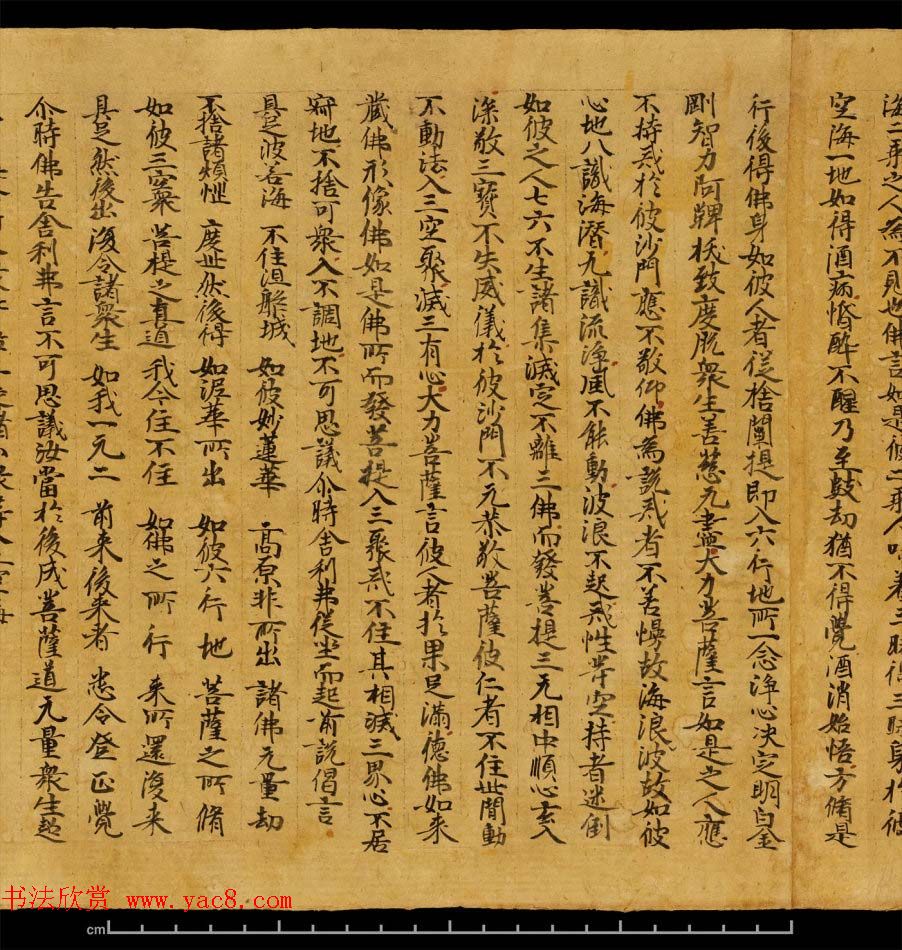 海二乘之人為不見也佛言如是彼二乘人味著三昧得三昧身於彼
空海一地如得酒病惛醉不醒乃至數劫猶不得覺酒消始悟方脩是
行後得佛身如彼人者從捨闡提即入六行地所一念淨心決定明白金
剛智力阿鞞䟦致度脫衆生善慈无盡大力菩薩言如是之人應
不持戒於彼沙門應不敬仰佛為說戒者不善慢故海浪波故如彼
心地八識海澄九識流淨風不能動波浪不起戒性等空持者迷倒
如彼之人七六不生諸集滅定不離三佛而發菩提三无相中順心玄入
深敬三寶不失威儀於彼沙門不无恭敬菩薩彼仁者不住世間動
不動法入三空聚滅三有心大力菩薩言彼人者於果足滿德佛如来
藏佛形像佛如是佛所而發菩提入三聚戒不住其相滅三界心不居
寂地不捨可衆入不調地不可思議尒時舍利弗從坐而起前說偈言
具足波若海 不住涅槃城 如彼妙蓮華 高原非所出 諸佛无量劫
不捨諸煩惱 度世然後得 如泥華所出 如彼六行地 菩薩之所脩
如彼三空聚 菩提之真道 我今住不住 如佛之所行 来所還復来
具足然後出 復令諸衆生 如我一无二 前来後来者 悉令登正覺
尒時佛告舍利弗言不可思議汝當於後成菩薩道无量衆生超
书法欣赏 www.yac8.com
cm